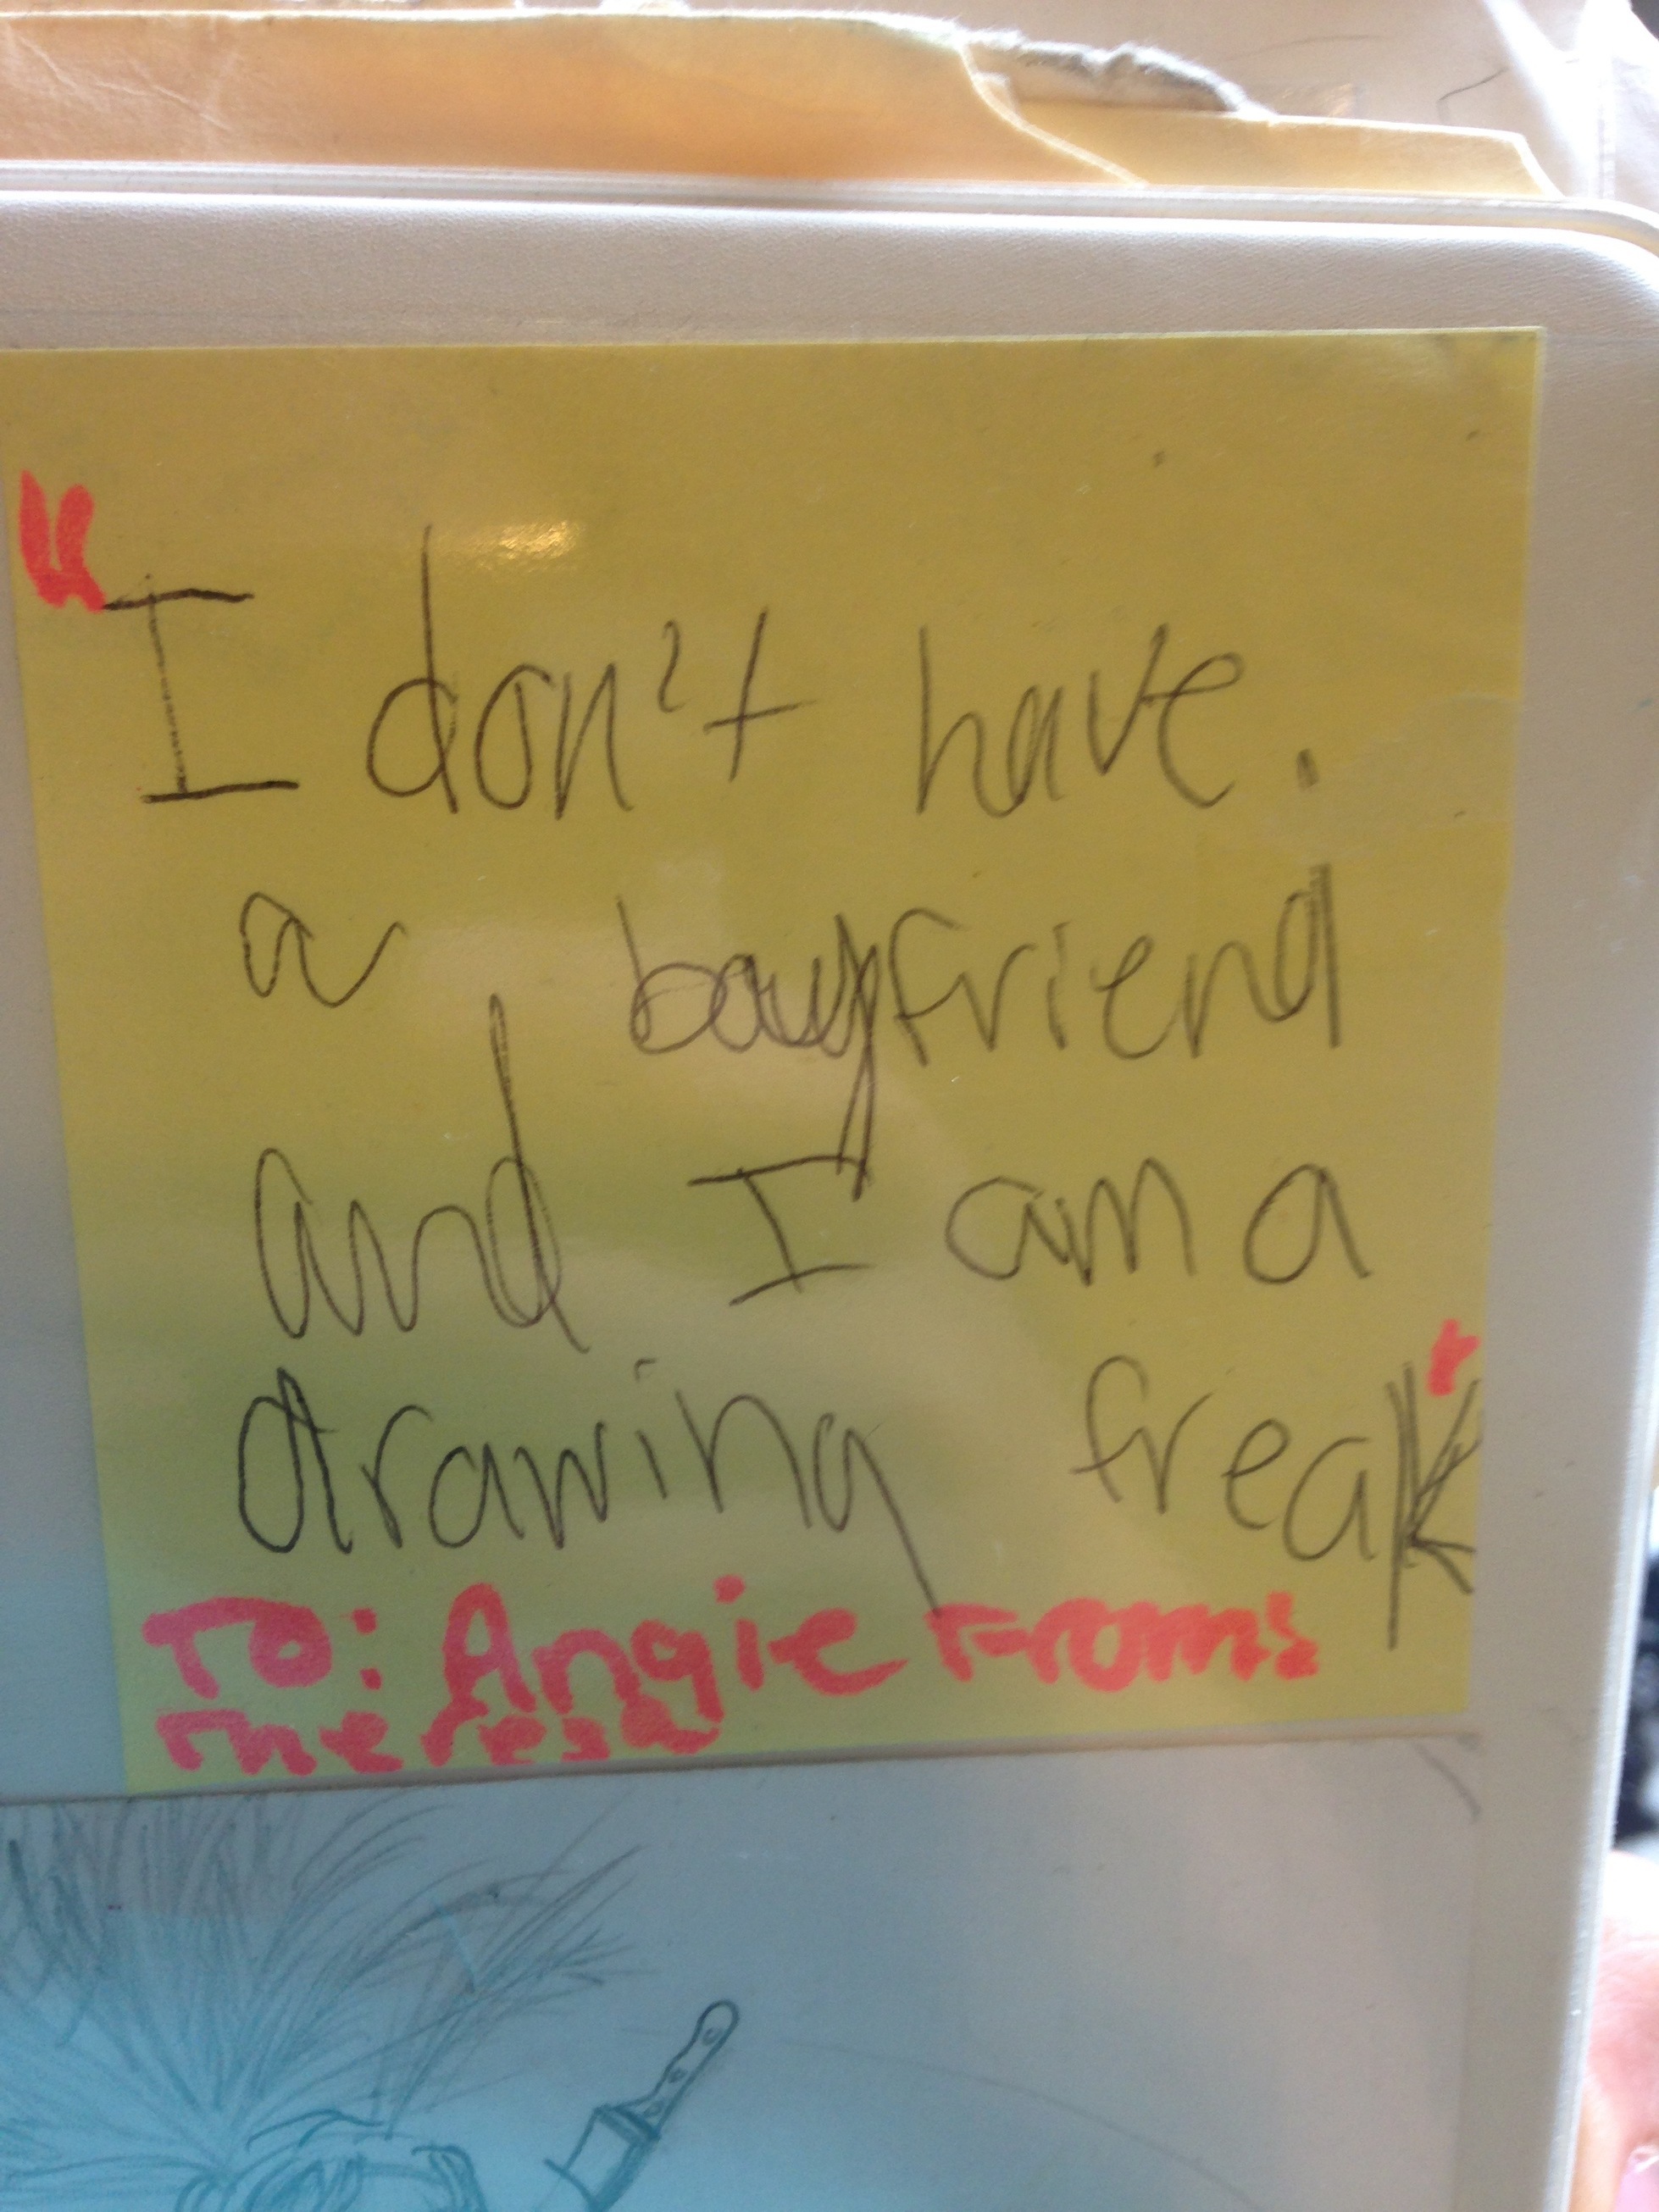 "I don't have.
a boyfriend
and I am a
drawing freak"
To: Angie From:
Theresa